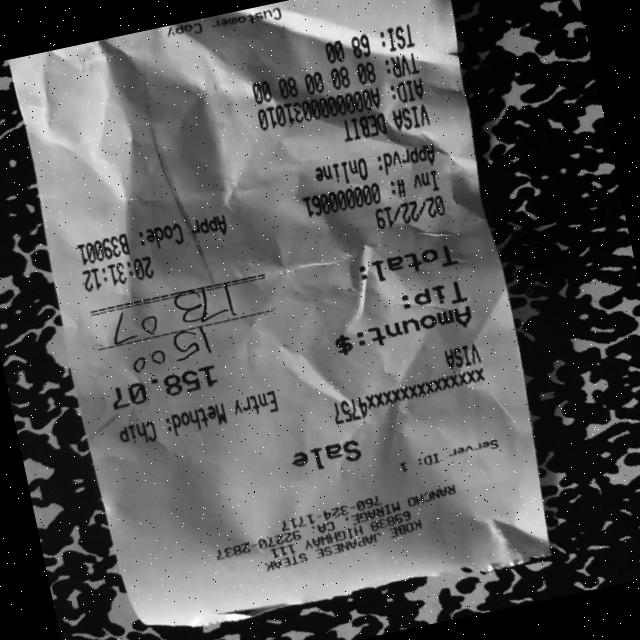 KOBE
JAPANESE STEAK
69838 HIGHWAY 111
RANCHO MIRAGE, CA 92270 2837
760-324-1717
Server ID: 1
Sale
xxxxxxxxxxxx4757
VISA Entry Method: Chip
Amount:$ 158.07
Tip: 15.00
Total: 173.07
02/22/19 20:31:12
Inv #: 00000061 Appr Code: B39001
Apprvd: Online
VISA DEBIT
AID: A0000000031010
TVR: 80 80 00 80 00
TSI: 68 00
Customer Copy